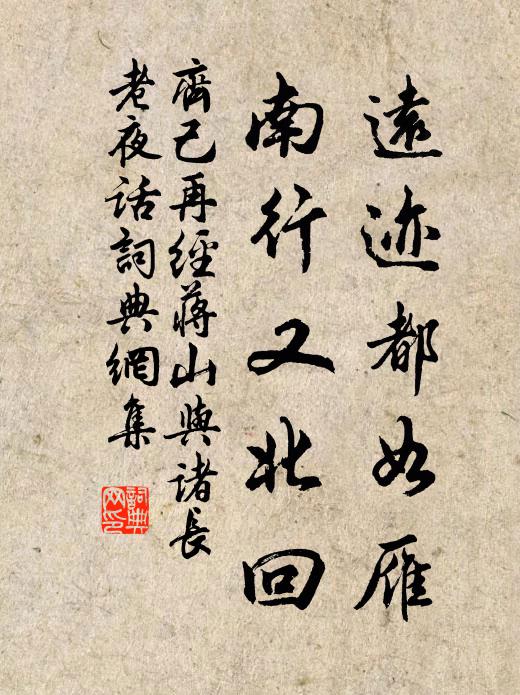 遠迹都如雁
南行又北回
齊己再經蔣山與諸長
老夜話詞典網集
詞典
网印